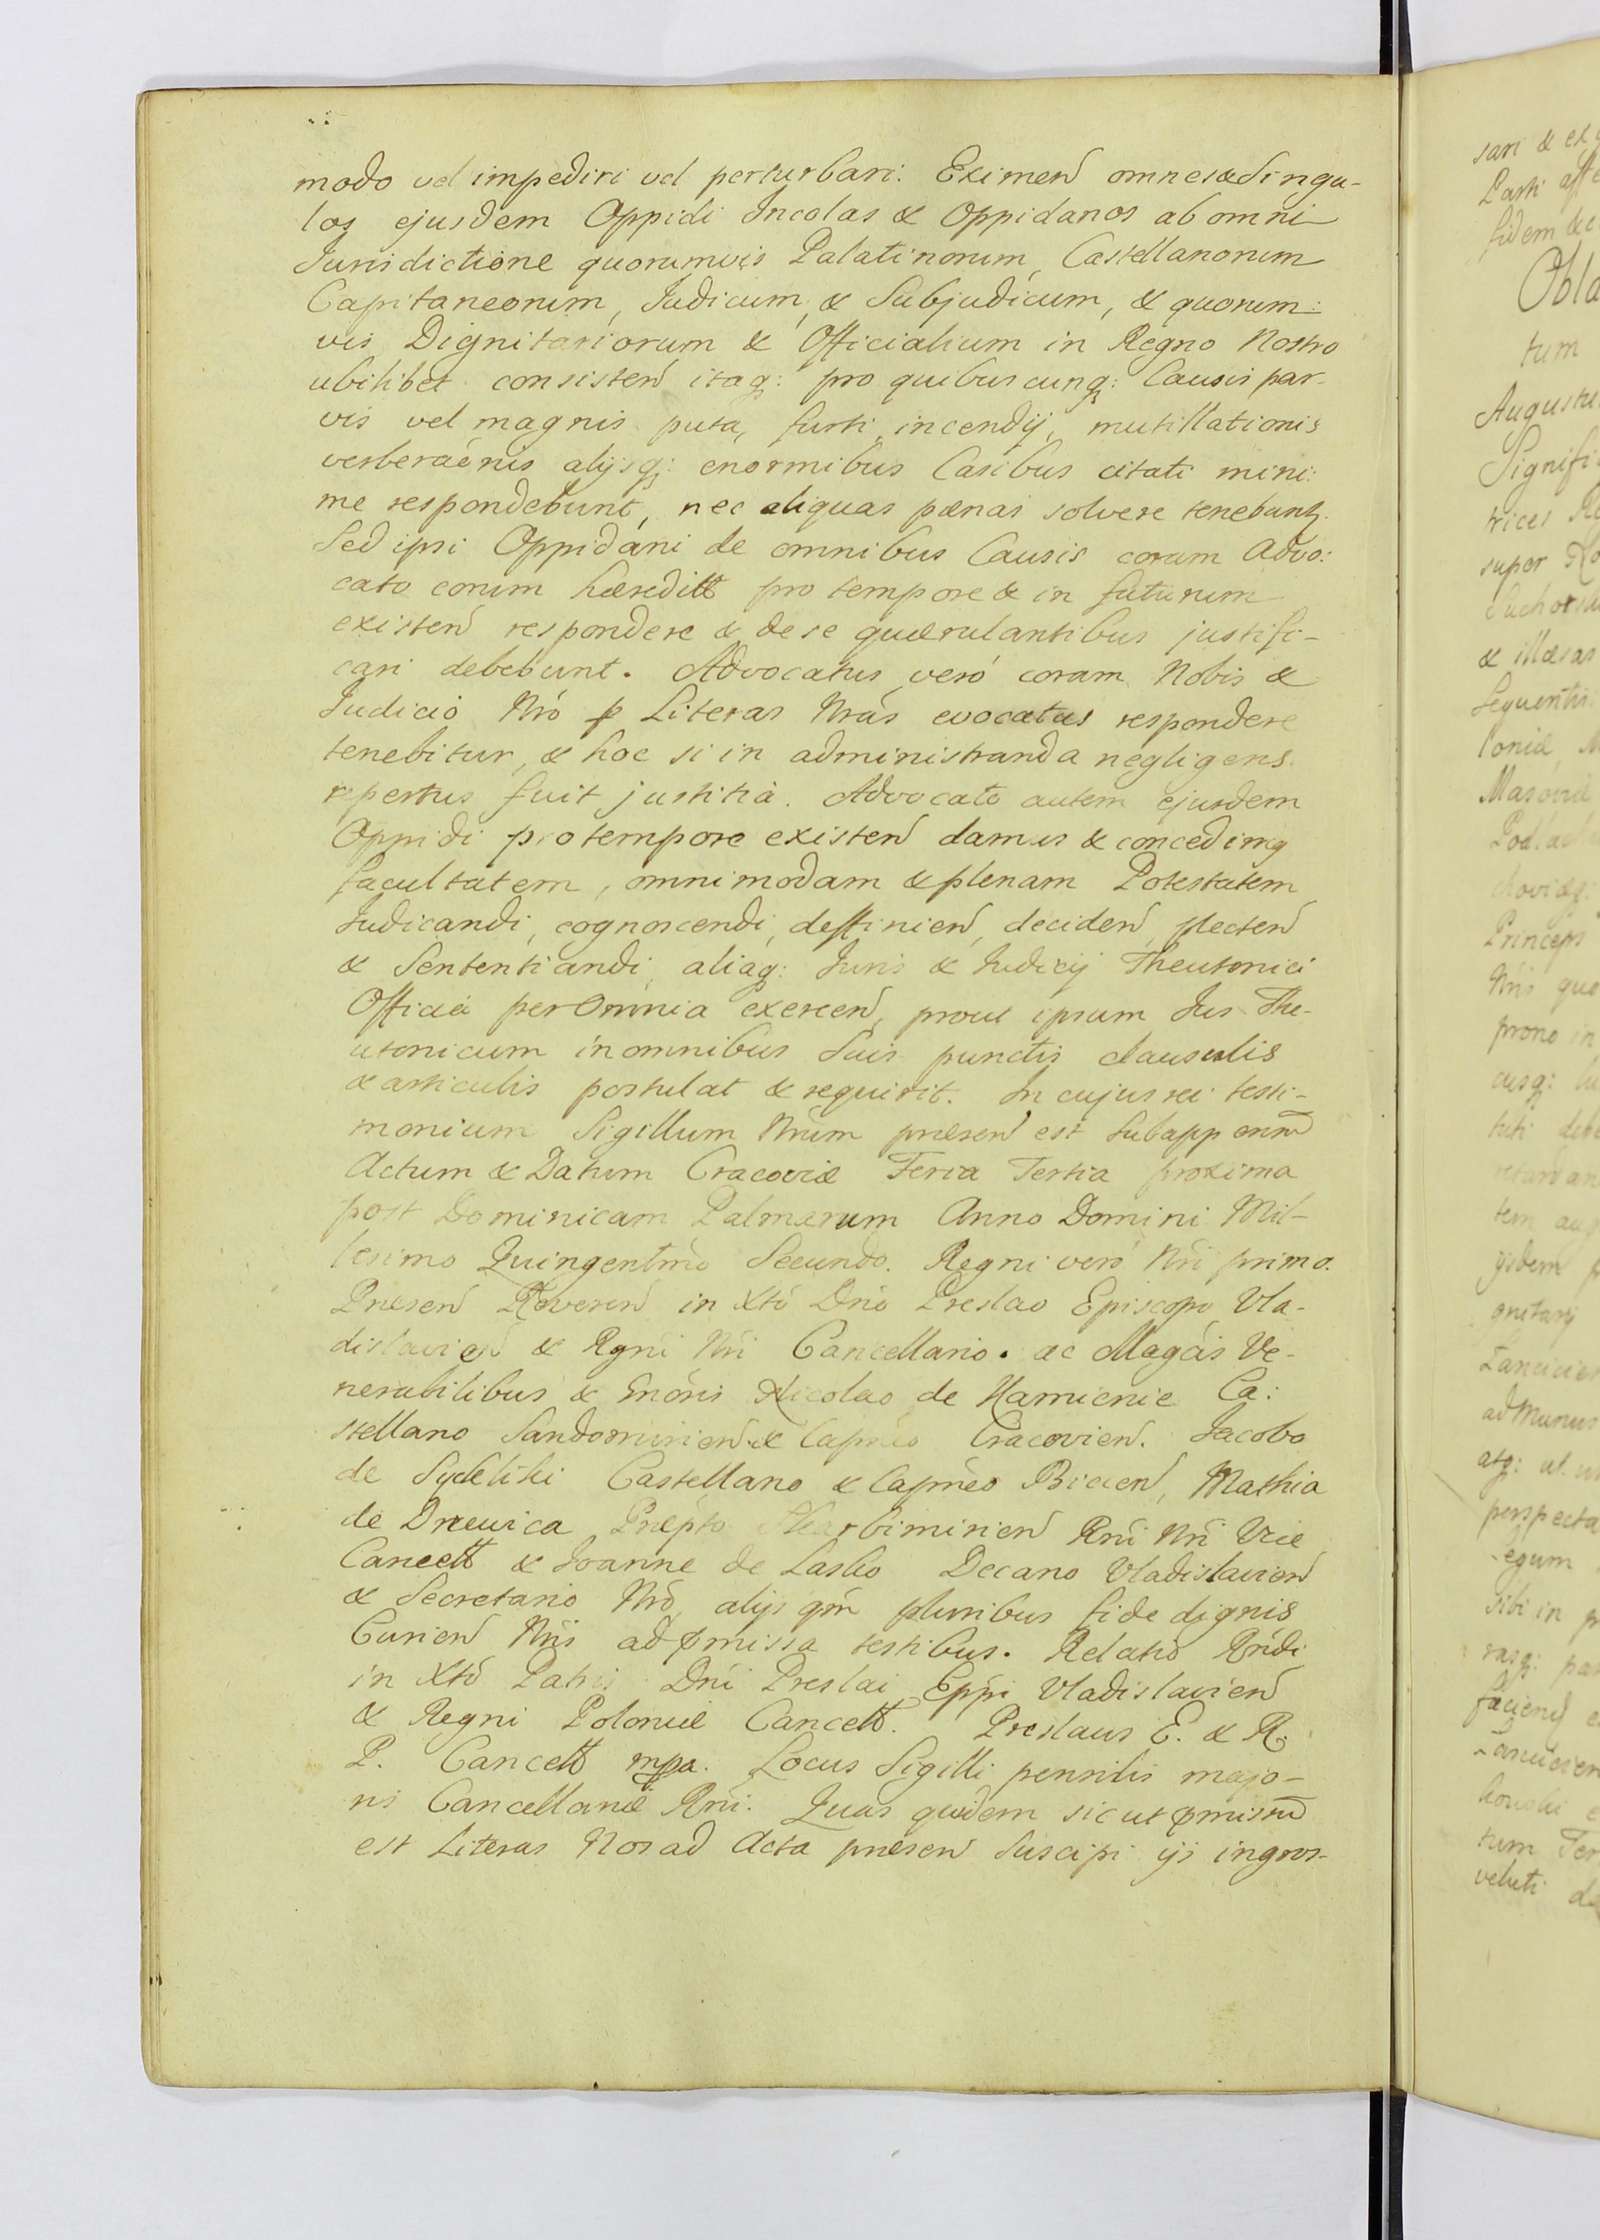 modo vel impediri vel perturbari. Eximen omnes & Singu-
los ejusdem Oppidi Incolas & Oppidanos ab omni
Jurisdictione quorumvis Palatinorum, Castellanorum
Capitaneorum, Judicum, & Subjudicum, & quorum:
vis Dignitariorum & Officialium in Regno Nostro
ubilibet consisten itaq: pro quibuscunq: Causis par-
vis vel magnis puta, furti, incendij, mutillationis
verberaónis alijsq: enormibus Casibus citati mini:
me respondebunt, nec aliquas pœnas solvere tenebuntr.
Sed ipsi Oppidani de omnibus Causis coram Advo:
cato eorum hæreditt pro tempore & in futurum
existen respondere & de se quærulantibus justifi-
cari debebunt. Advocatus veró coram Nobis &
Judicio Nró p Literas Nrás evocatus respondere
tenebitur, & hoc si in administranda negligens
repertus fuit justitia. Advocato autem ejusdem
Oppidi pro tempore existen damus & concedimq
facultatem, omnimodam & plenam Potestatem
Judicandi, cognoscendi, deffinien, deciden, plecten
& Sententiandi, aliaq: Juris & Judicij Theutonici
Officia per Omnia exercen, prout ipsum Jus The-
utonicum in omnibus Suis punctis clausulis
& articulis postulat & requirit. In cujus rei testi-
monium Sigillum Nrum præsen est Subappensū
Actum & Datum Cracoviæ Feria Tertia proxima
post Dominicam Palmarum Anno Domini Mil-
lesimo Quingentmo Secundo. Regni vero Nri primo.
Præsen Reveren in Xtó Dnó Preslao Episcopo Vla-
dislavien & Rgni Nri Cancellario. ac Magcis Ve-
nerabilibus & Gnóris Nicolao de Kamienie Ca:
stellano Sandomirien & Capneo Cracovien. Jacobo
de Castellano & Capneo Biecien, Mathia
de Drzewica Præpto Skarbimirien Rni Nri Vice
Cancett & Joanne de Lasko Decano Vladislavien
& Secretario Nró, alijs qm pluribus fide dignis
Curien Nris ad pmissa testibus. Relatio Rndi
in Xtó Patris Dni Preslai Eppi Vladislavien
& Regni Poloniæ Cancett. Preslaus E. & R.
P. Cancett mpa. Locus Sigilli pensilis majo-
ris Cancellariæ Rni. Quas quidem sicut pmissū
est Literas Nos ad Acta præsen Suscipi ijs ingros-